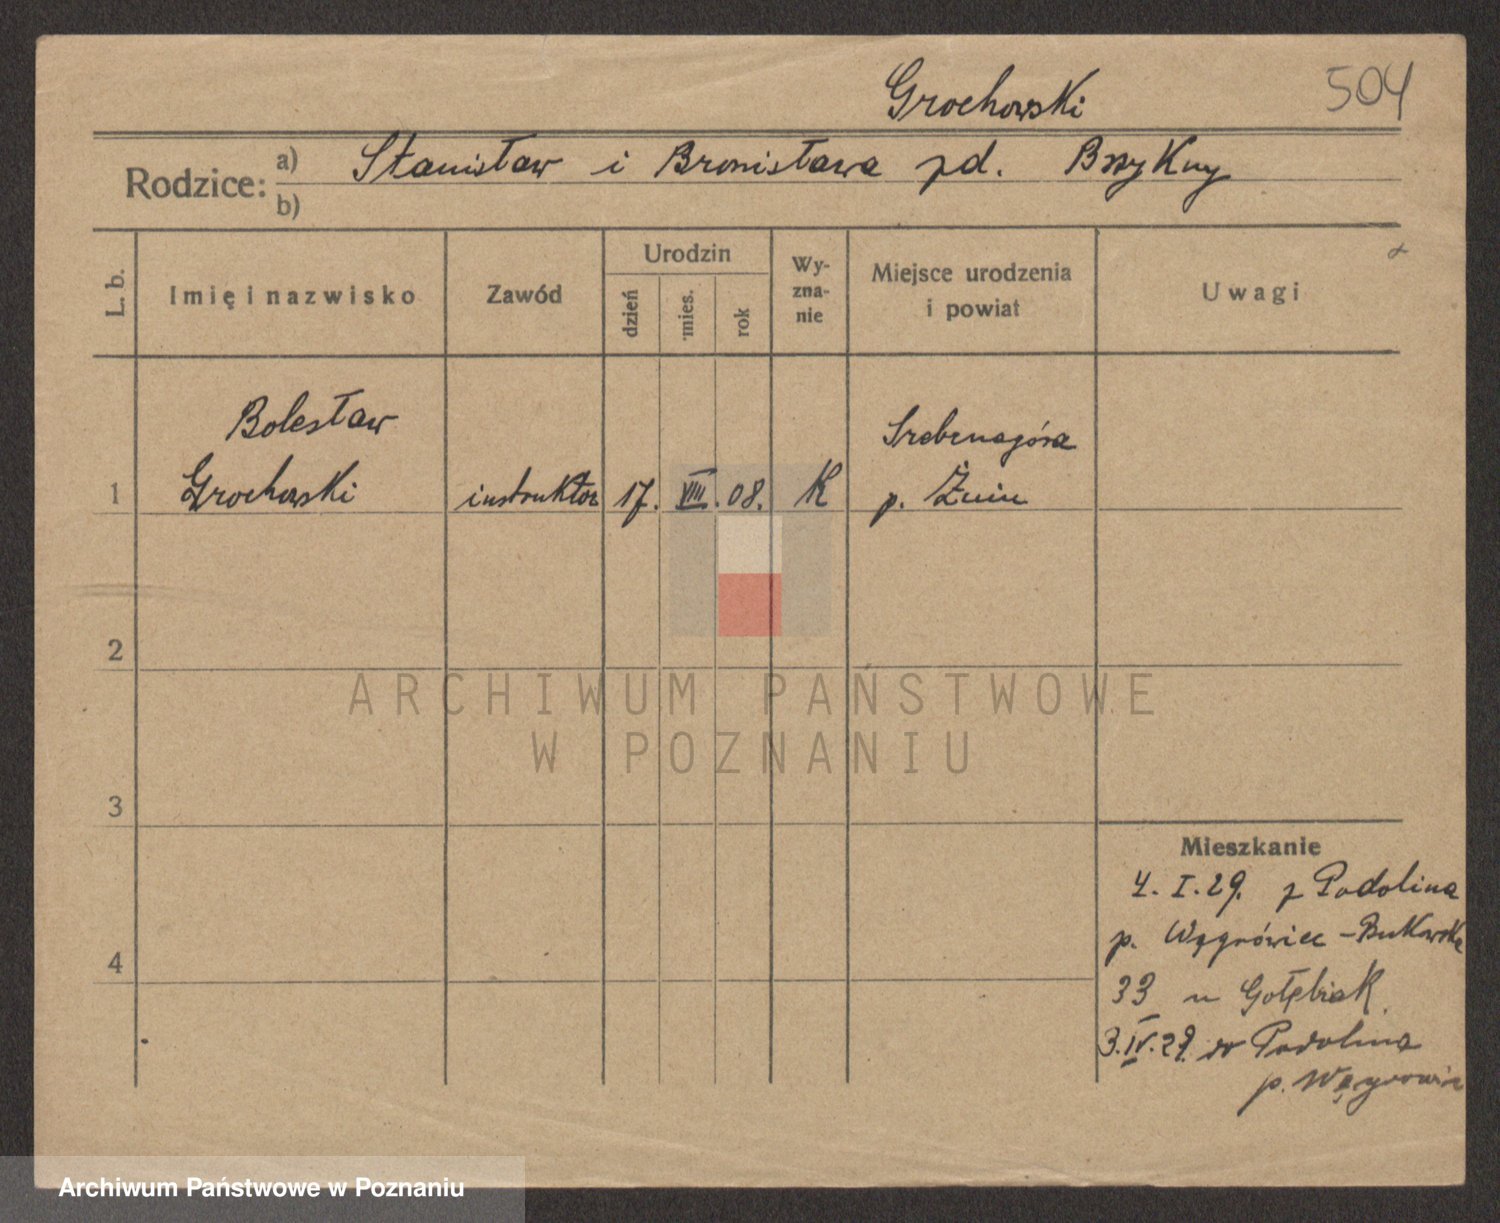 Grochowski
504
Rodzice: a) Stanisław i Bronisława zd.
b)
L. b.
Imię i nazwisko
Zawód
Urodzin
dzień
mies.
rok
Wy-
zna-
nie
Miejsce urodzenia
i powiat
Uwagi
Bolesław
Grochowski
1
instruktor
17.
VIII.
08.
K
Srebrnagóra
p. Żnin
2
3
4
ARCHIWUM PAŃSTWOWE
W POZNANIU
Mieszkanie
4. I. 29. z Podolina
p. Wągrówiec - Bukowska
33 u Gołębiak
3. IV. 29. do Podolina
p. Wągrowiec
Archiwum Państwowe w Poznaniu